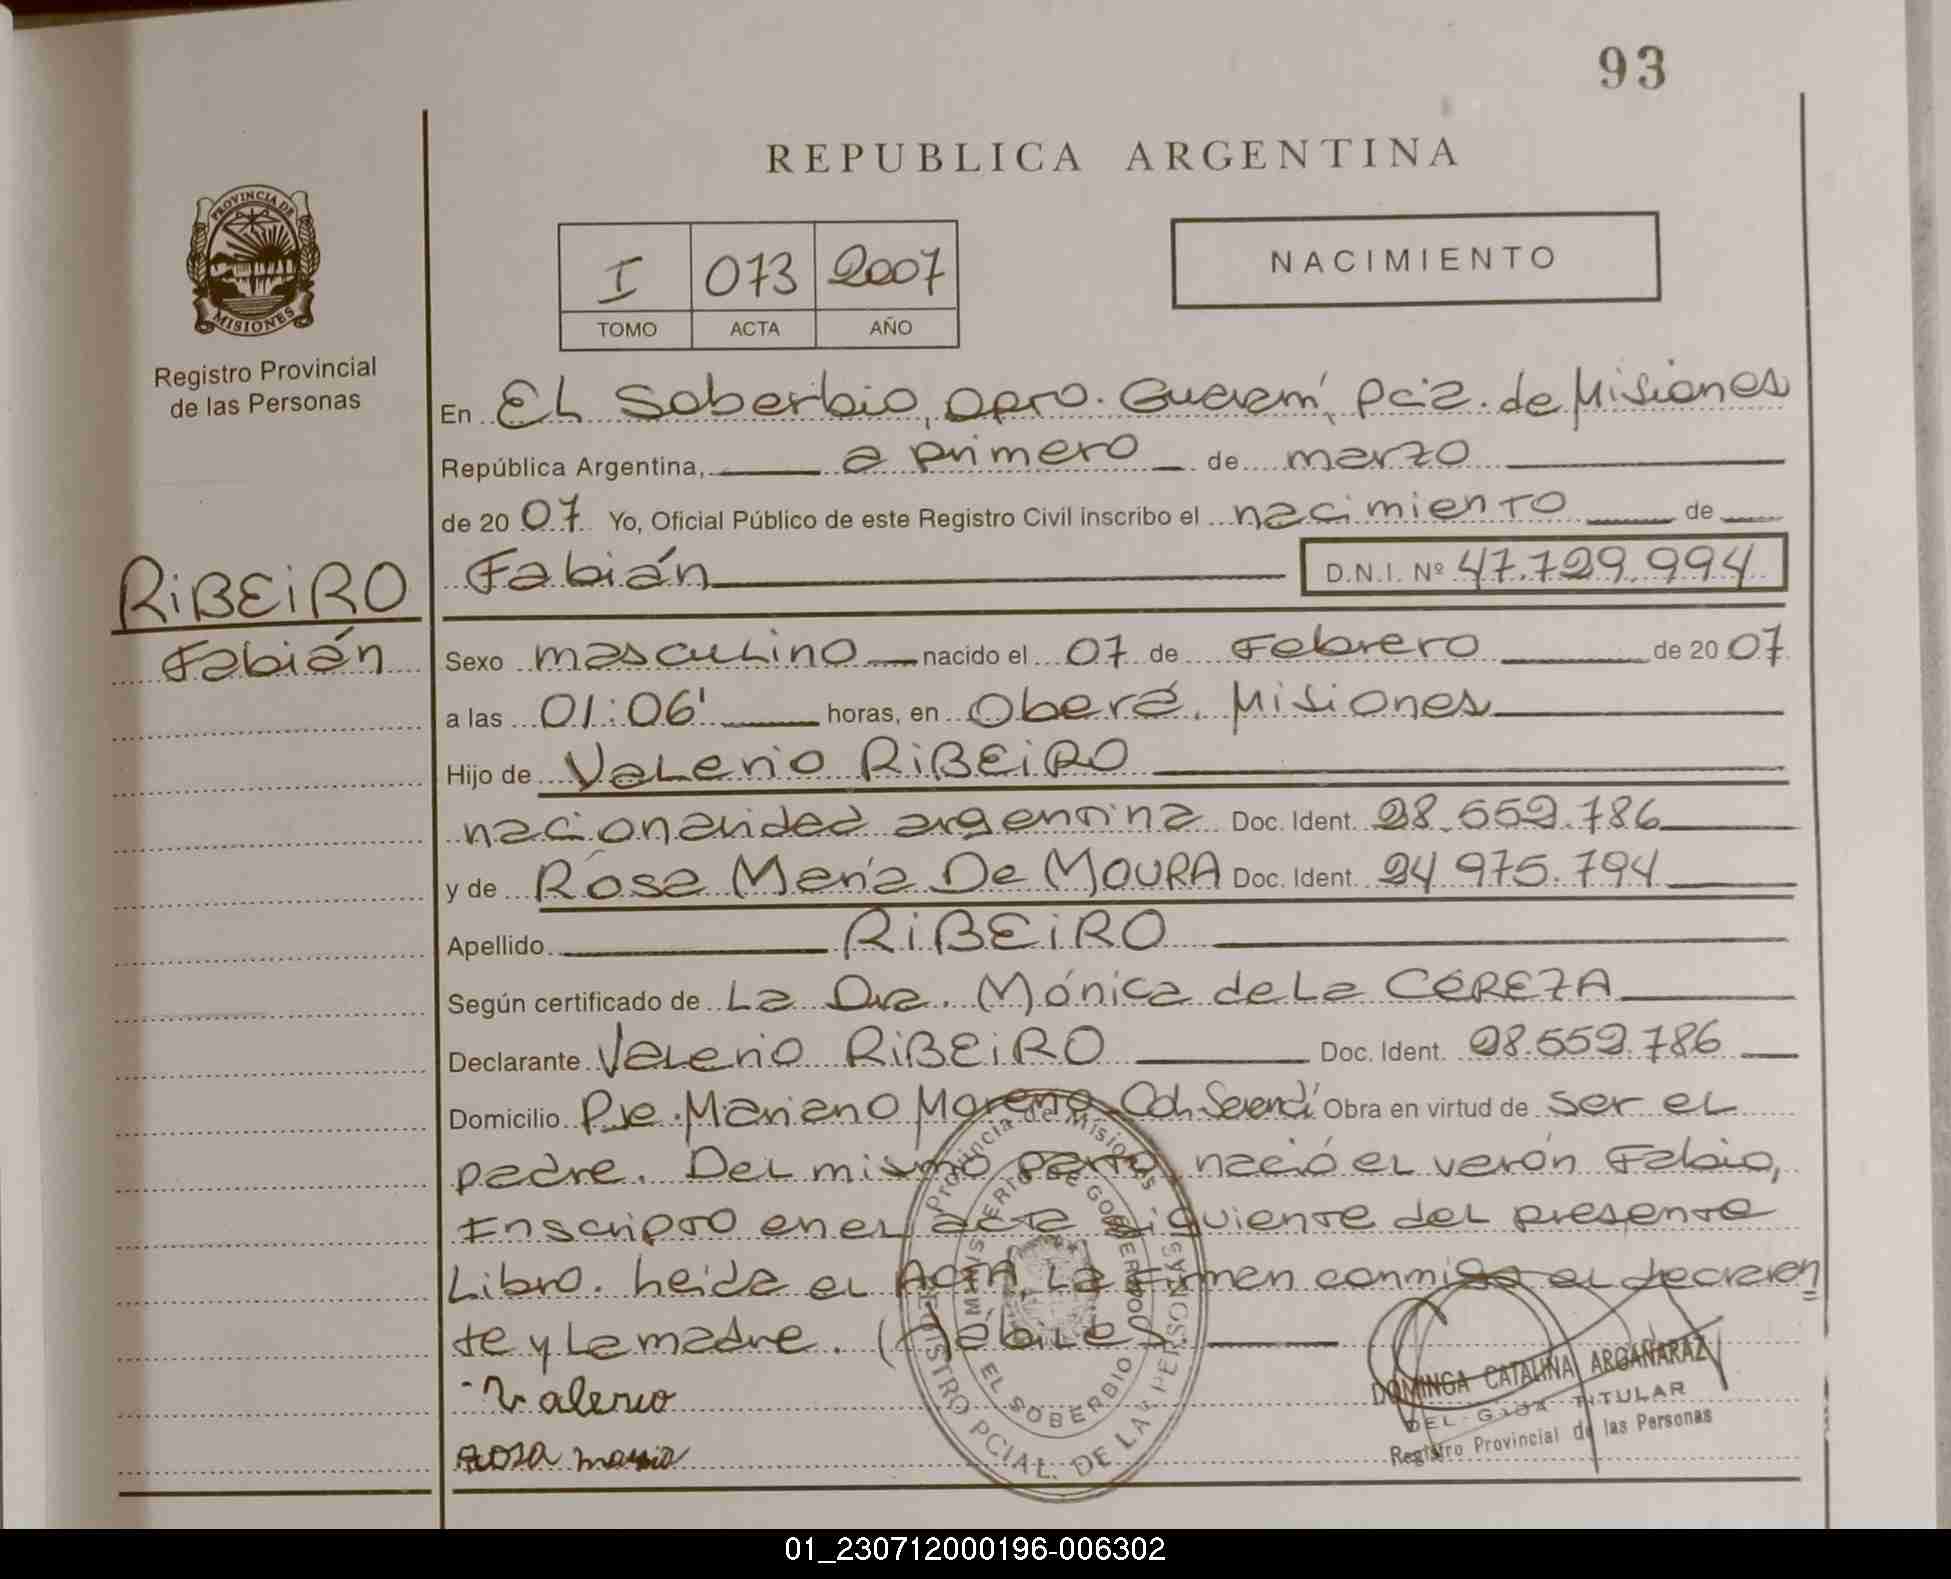 93
REPUBLICA ARGENTINA
PROVINCIA DE MISIONES
Registro Provincial
de las Personas
I 073 2007
TOMO ACTA AÑO
NACIMIENTO
En El Soberbio, Dpro. Guaraní, Pcia. de Misiones
República Argentina, a primero de marzo
de 2007 Yo, Oficial Público de este Registro Civil inscribo el nacimiento de
RiBEiRO
Fabián
Fabián D.N.I. Nº 47.729.994
Sexo masculino nacido el 07 de Febrero de 2007
a las 01:06' horas, en Oberá. Misiones
Hijo de Valerio RiBEiRO
nacionalidad argentina Doc. Ident. 28.552.786
y de Rosa María De MOURA Doc. Ident. 24.975.794
Apellido RiBEiRO
Según certificado de La Dra. Mónica de La CEREZA
Declarante Valerio RiBEiRO Doc. Ident. 28.552.786
Domicilio Pje. Mariano Moreno Obra en virtud de ser el
padre. Del mismo parto, nació el varón Fabio,
Inscripto en el acta siguiente del presente
Libro. Leida el ACTA, La Firman conmigo el declaran
te y La madre.
Valerio
Rosa maria
Provincia de Misiones
MINISTERIO DE GOBIERNO
EL SOBERBIO
REGISTRO PCIAL. DE LAS PERSONAS
DOMINGA CATALINA ARGAÑARAZ
TITULAR
Registro Provincial de las Personas
01_230712000196-006302